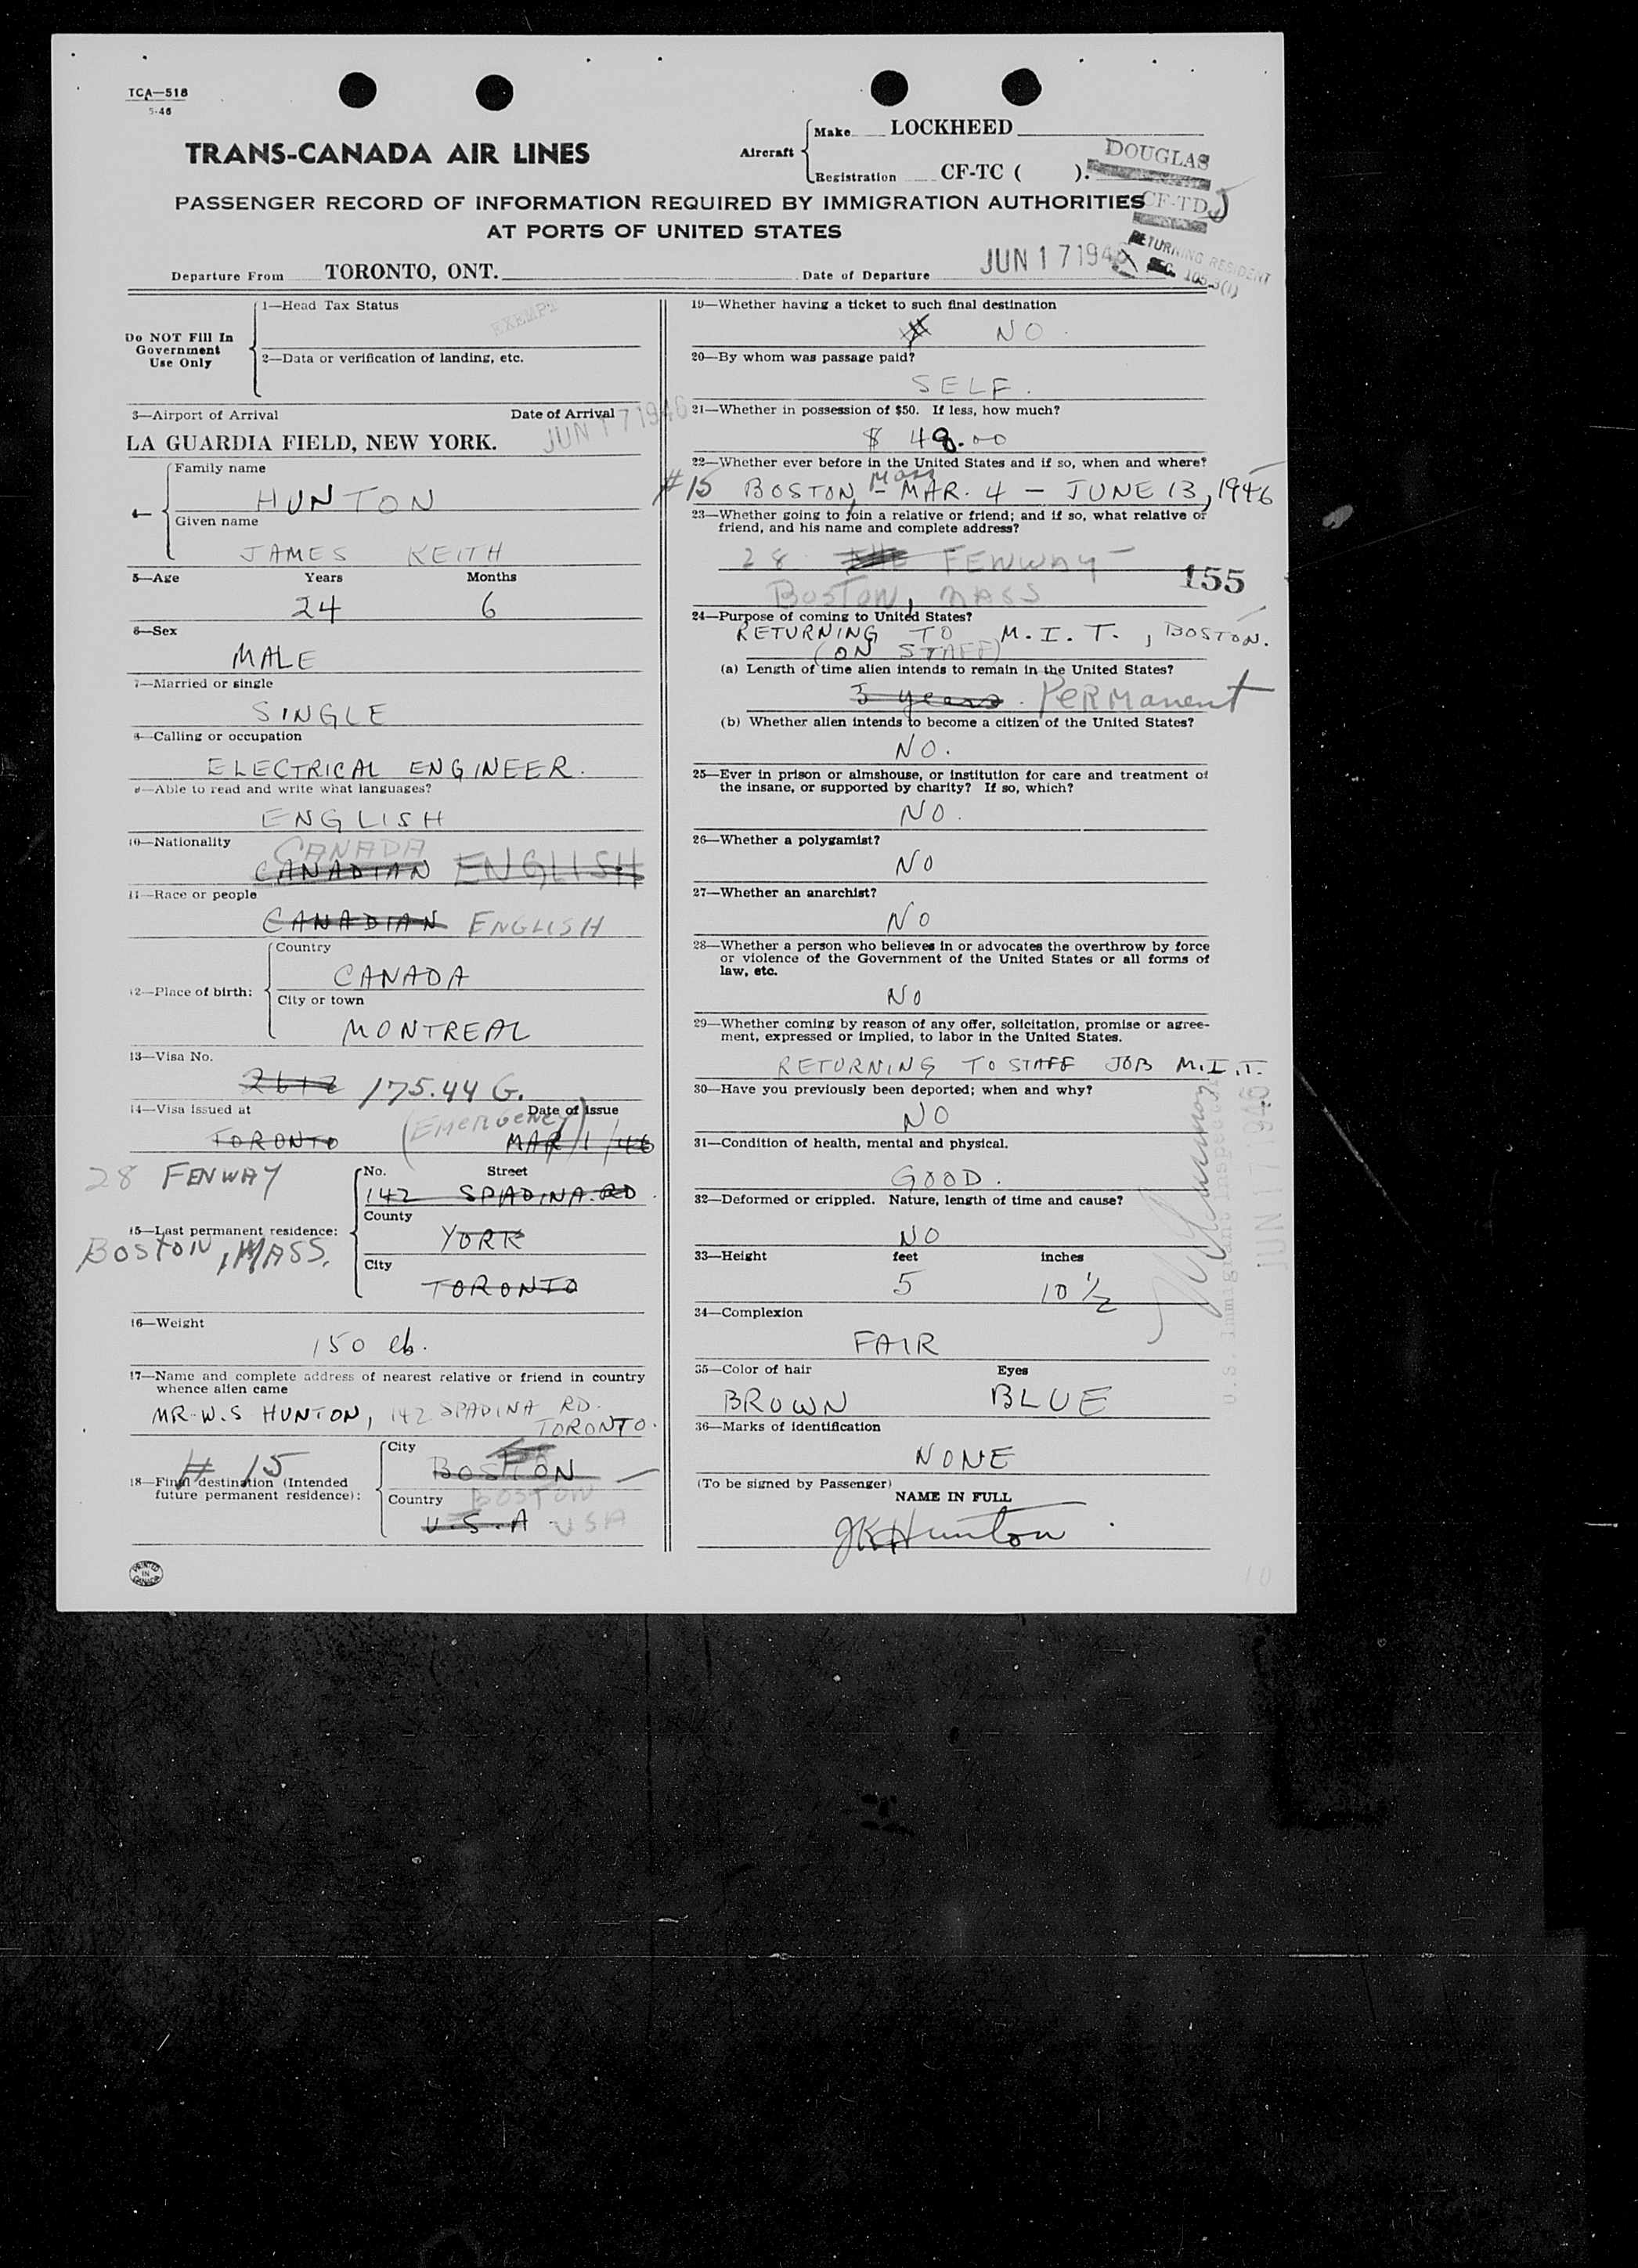 TCA—518
5-46
TRANS-CANADA AIR LINES
Aircraft
Make LOCKHEED
Registration CF-TC ( ).
DOUGLAS
CF-TDJ
PASSENGER RECORD OF INFORMATION REQUIRED BY IMMIGRATION AUTHORITIES
AT PORTS OF UNITED STATES
RETURNING RESIDENT
SEC. 105.3(1)
Departure From TORONTO, ONT. Date of Departure JUN 17 1946
Do NOT Fill In
Government
Use Only
1—Head Tax Status
EXEMPT
2—Data or verification of landing, etc.
3—Airport of Arrival Date of Arrival
LA GUARDIA FIELD, NEW YORK. JUN 17 1946
Family name
HUNTON
Given name
JAMES KEITH
5—Age Years Months
24 6
6—Sex
MALE
7—Married or single
SINGLE
8—Calling or occupation
ELECTRICAL ENGINEER.
9—Able to read and write what languages?
ENGLISH
10—Nationality
CANADA
CANADIAN ENGLISH
11—Race or people
CANADIAN ENGLISH
12—Place of birth:
Country
CANADA
City or town
MONTREAL
13—Visa No.
2612 175.44 G.
14—Visa issued at Date of issue
TORONTO (Emergency) MAR/1/46
28 FENWAY
BOSTON, MASS.
15—Last permanent residence:
No. Street
142 SPADINA RD.
County
YORK
City
TORONTO
16—Weight
150 lb.
17—Name and complete address of nearest relative or friend in country
whence alien came
MR. W.S HUNTON, 142 SPADINA RD.
TORONTO.
# 15
18—Final destination (Intended
future permanent residence):
City
BOSTON
BOSTON
Country
U.S.A USA
PRINTED
IN
CANADA
19—Whether having a ticket to such final destination
NO.
20—By whom was passage paid?
SELF.
21—Whether in possession of $50. If less, how much?
$ 48.00
22—Whether ever before in the United States and if so, when and where?
#15 BOSTON, Mass - MAR. 4 - JUNE 13, 1946
23—Whether going to join a relative or friend; and if so, what relative or
friend, and his name and complete address?
28 FENWAY
BOSTON, MASS
155
24—Purpose of coming to United States?
RETURNING TO M.I.T., BOSTON.
(ON STAFF)
(a) Length of time alien intends to remain in the United States?
3 years. Permanent
(b) Whether alien intends to become a citizen of the United States?
NO.
25—Ever in prison or almshouse, or institution for care and treatment of
the insane, or supported by charity? If so, which?
NO.
26—Whether a polygamist?
NO
27—Whether an anarchist?
NO
28—Whether a person who believes in or advocates the overthrow by force
or violence of the Government of the United States or all forms of
law, etc.
NO
29—Whether coming by reason of any offer, solicitation, promise or agree-
ment, expressed or implied, to labor in the United States.
RETURNING TO STAFF JOB M.I.T.
30—Have you previously been deported; when and why?
NO
31—Condition of health, mental and physical.
GOOD.
32—Deformed or crippled. Nature, length of time and cause?
NO
33—Height feet inches
5 10 1/2
34—Complexion
FAIR
35—Color of hair Eyes
BROWN BLUE
36—Marks of identification
NONE
(To be signed by Passenger)
NAME IN FULL
JKHunton
U.S. Immigrant Inspector
JUN 17 1946
10